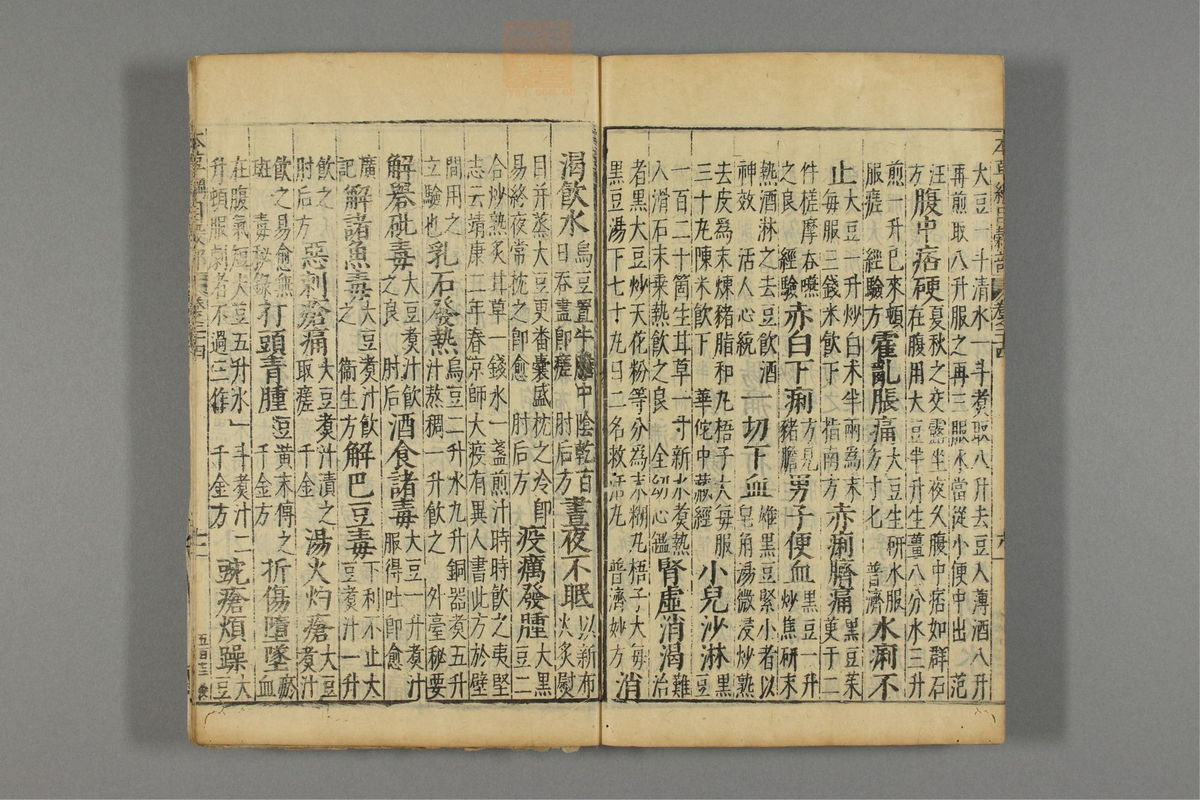 大豆一斗清水一斗煮取八升去豆入薄酒八升再煎取八升服之再三服水當從小便中出 范
汪 腹中痞硬 夏秋之交露坐夜久腹中痞如群石在腹用大豆半升生薑八分水三升
煎一升已來頓服瘥 經驗方 霍亂脹痛 大豆生研水服方寸匕 普濟 水痢不
止 大豆一升炒白术半兩為末每服三錢米飲下 指南方 赤痢臍痛 黑豆茱萸子二
件搓摩吞嚥之良 經驗 赤白下痢 方見豬膽 男子便血 黑豆一升炒焦研末
熱酒淋之去豆飲酒神效 活人心統 一切下血 雄黑豆緊小者以皂角湯微浸炒熟
去皮為末煉豬脂和丸梧子大每服三十丸陳米飲下 華佗中藏經 小兒沙淋 黑豆
一百二十箇生甘草一寸新水煮熱入滑石末乘熱飲之良 全幼心鑑 腎虛消渴 難治
者黑大豆炒天花粉等分為末糊丸梧子大每黑豆湯下七十丸日二名救活丸 普濟妙方 消
渴飲水 烏豆置牛膽中陰乾百日吞盡即瘥 肘后方 晝夜不眠 以新布火炙熨
目并蒸大豆更番囊盛枕之冷即易終夜常枕之即愈 肘后方 疫癘發腫 大黑豆二
合炒熟炙甘草一錢水一盞煎汁時時飲之夷堅志云靖康二年春京師大疫有異人書此方於壁
間用之立驗也 乳石發熱 烏豆二升水九升銅器煮五升汁熬稠一升飲之 外臺秘要
解礜砒毒 大豆煮汁飲之良 肘后 酒食諸毒 大豆一升煮汁服得吐即愈
廣記 解諸魚毒 大豆煮汁飲之 衛生方 解巴豆毒 下利不止大豆煮汁一升
飲之 肘后方 惡刺瘡痛 大豆煮汁漬之取瘥 千金方 湯火灼瘡 大豆煮汁
飲之易愈無斑 毒秘錄 打頭青腫 豆黃末傅之 千金方 折傷墮墜 瘀血
在腹氣短大豆五升水一斗煮汁二升頓服劇者不過三作 千金方 豌瘡煩躁 大豆